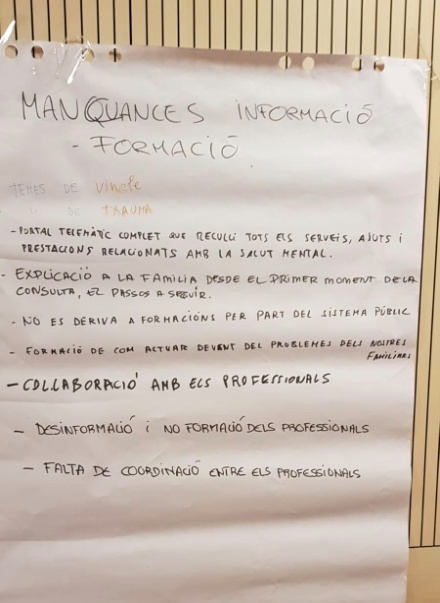 MANQUANCES INFORMACIÓ
- FORMACIÓ
TEMES DE Vincle
" DE TRAUMA
- PORTAL TELEMÀTIC COMPLET QUE RECULLI TOTS ELS SERVEIS, AJUTS i
PRESTACIONS RELACIONATS AMB LA SALUT MENTAL.
- EXPLICACIÓ A LA FAMILIA DESDE EL PRIMER MOMENT DE LA
CONSULTA, EL PASSOS A SEGUIR.
- NO ES DERIVA A FORMACIONS PER PART DEL SISTEMA PÚBLIC
- FORMACIÓ DE COM ACTUAR DEVENT DEL PROBLEMES DELS NOSTRES
FAMILIARS
- COL·LABORACIÓ AMB ELS PROFESSIONALS
- DESINFORMACIÓ i NO FORMACIÓ DELS PROFESSIONALS
- FALTA DE COORDINACIÓ ENTRE ELS PROFESSIONALS